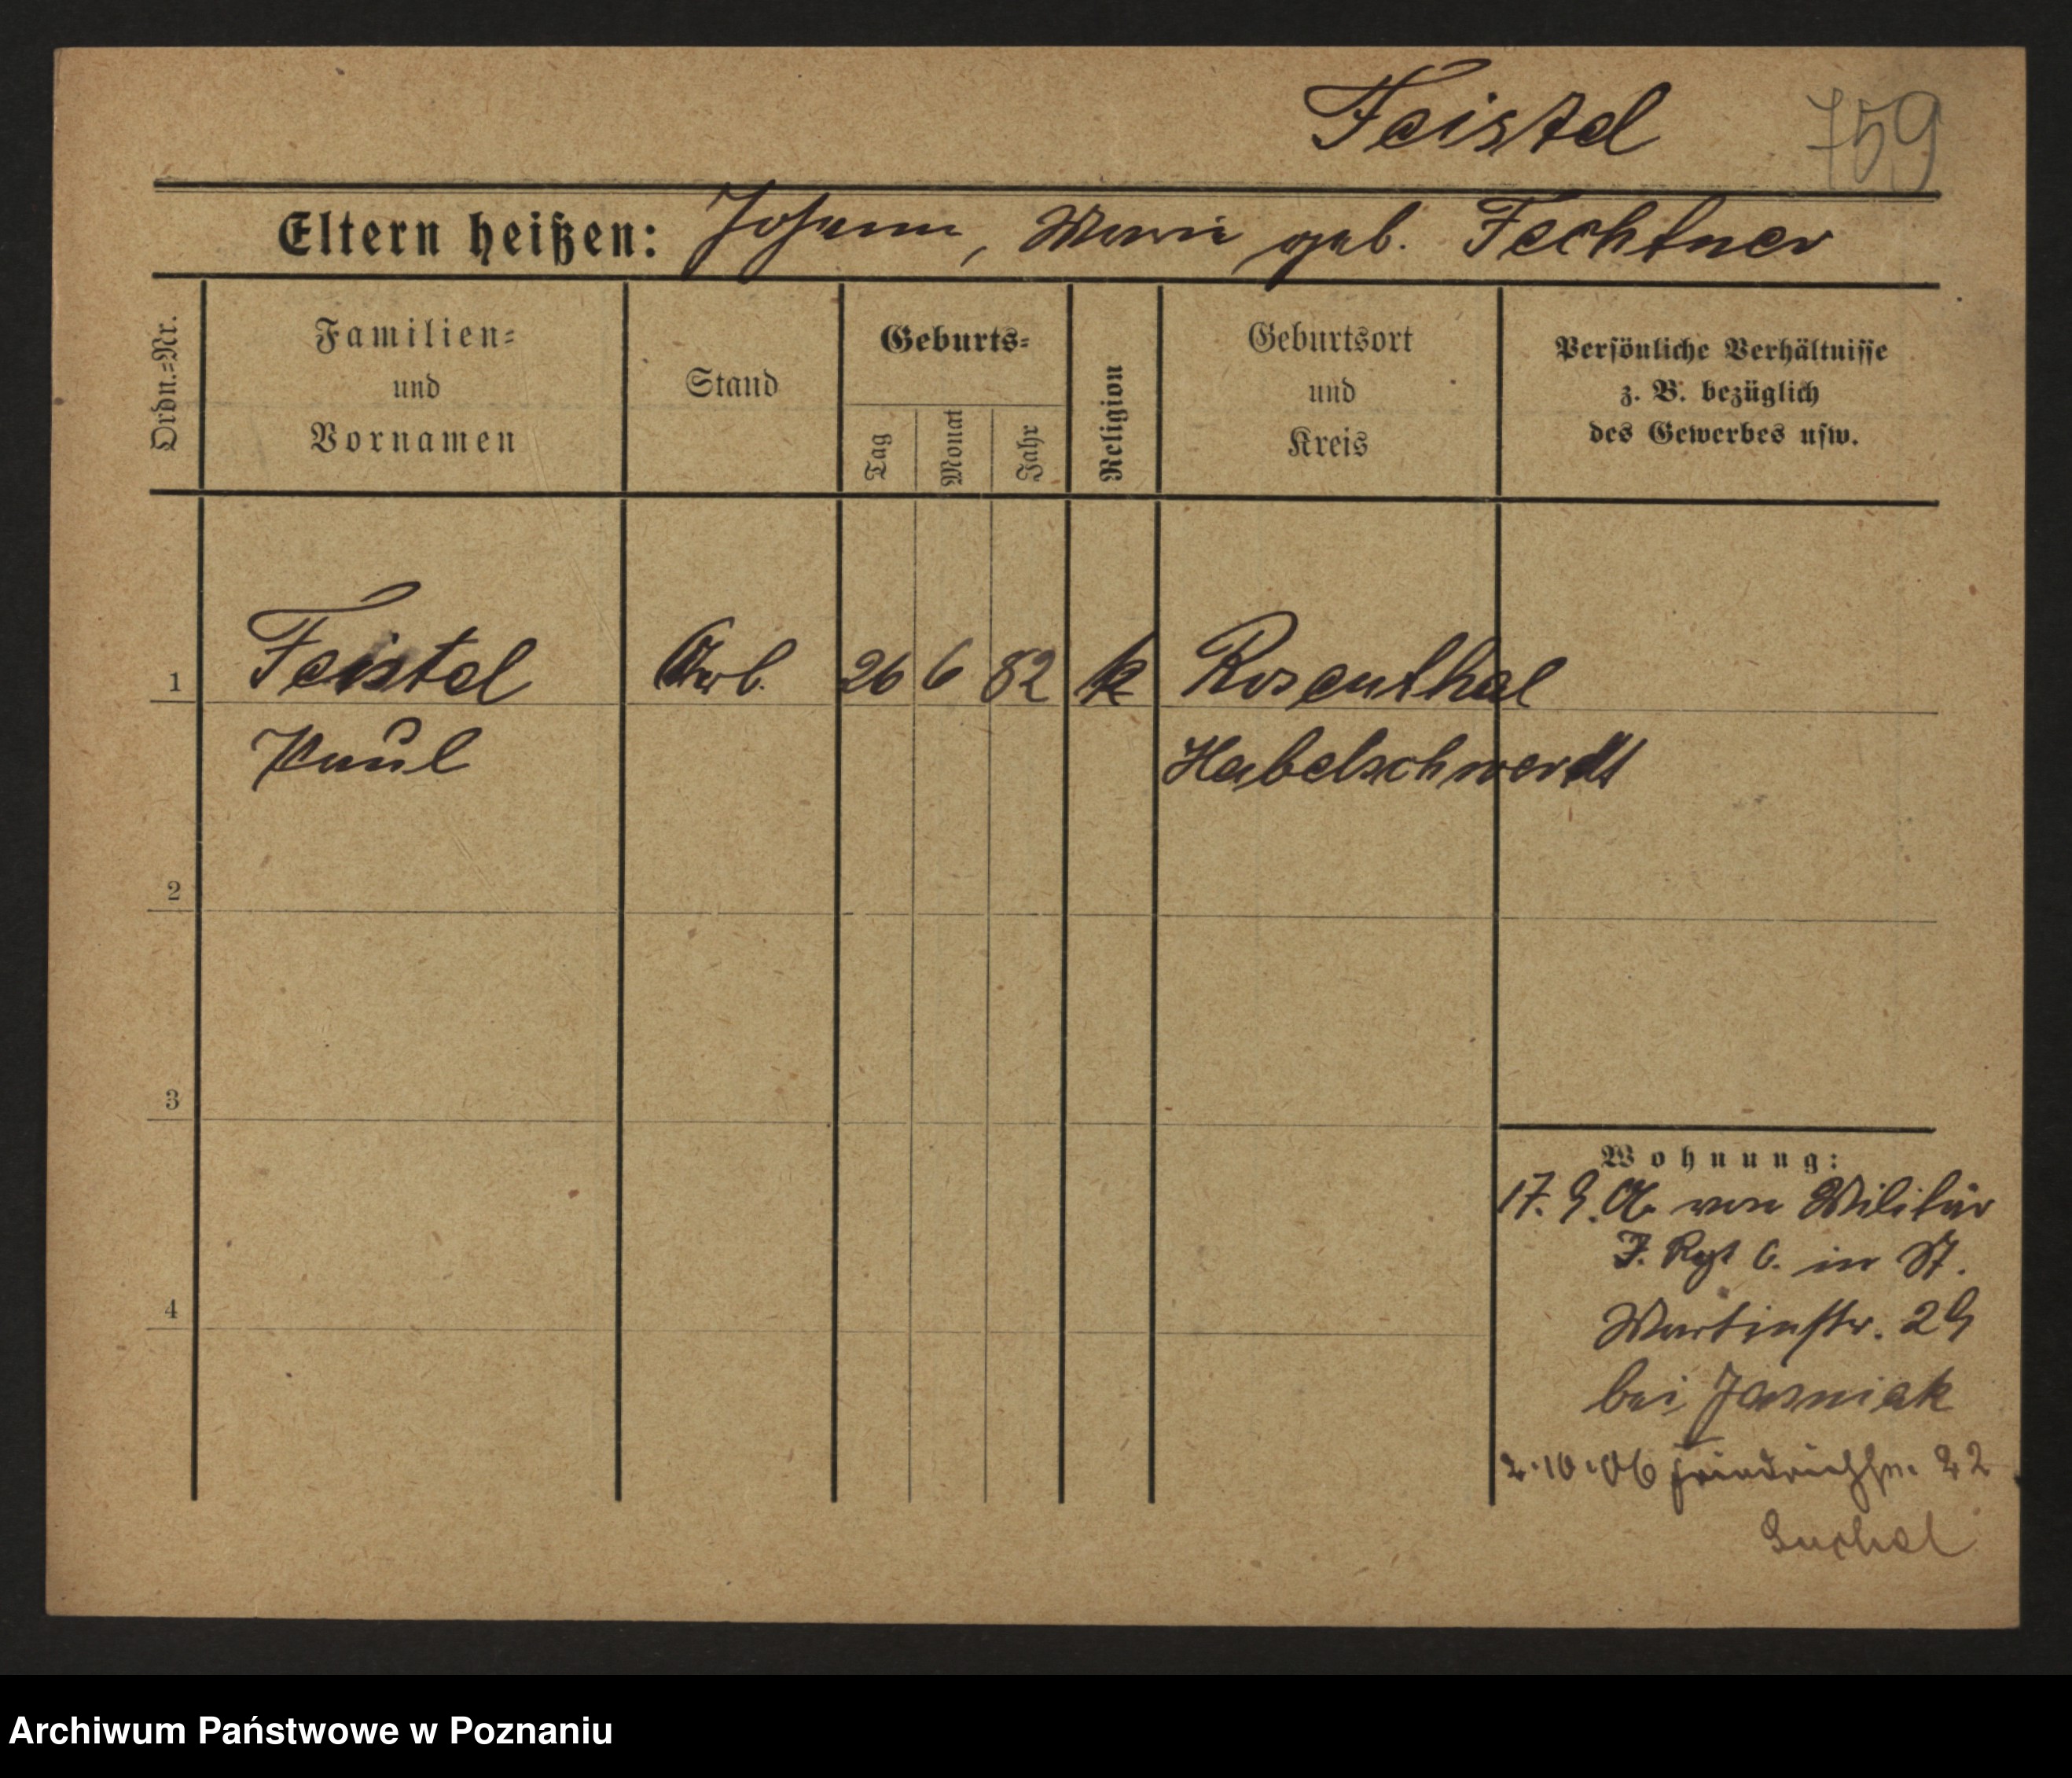 Feistel 759
Eltern heißen: Johann, Marie geb. Fechtner
Ordn.=Nr.
Familien=
und
Vornamen
Stand
Geburts=
Tag
Monat
Jahr
Religion
Geburtsort
und
Kreis
Persönliche Verhältnisse
z. B. bezüglich
des Gewerbes usw.
1 Feistel Arb. 26 6 82 k Rosenthal
Paul Habelschwerdt
2
3
4
Wohnung:
17. 9. 06 von Militär
J. Rgt 6. in St.
Martinstr. 29
bei Jasniak
2.10.06 Friedrichstr. 22
Suchal
Archiwum Państwowe w Poznaniu